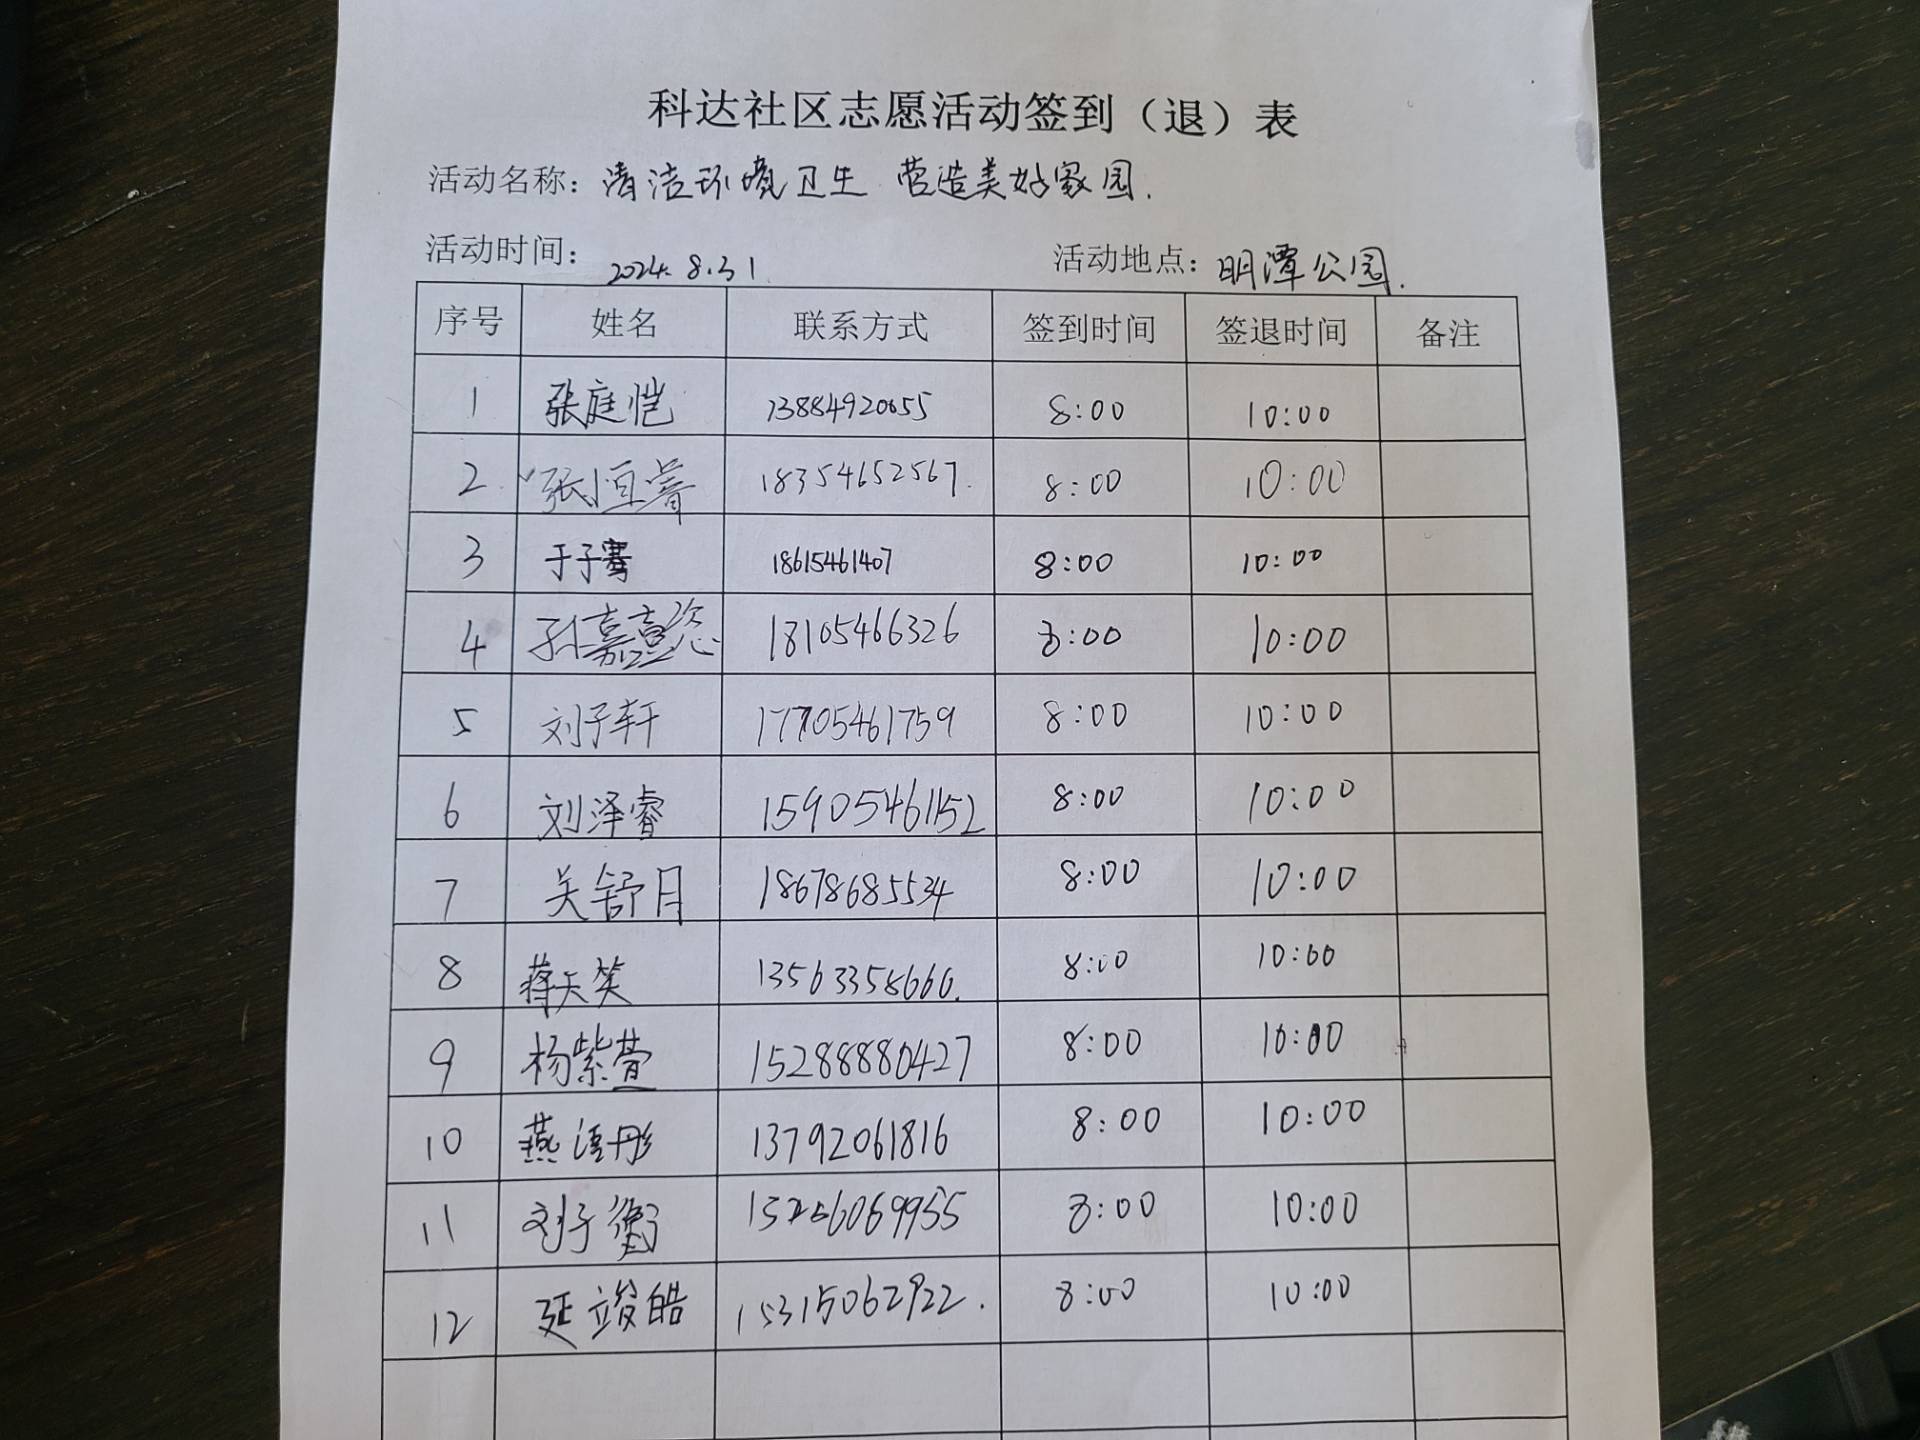 科达社区志愿活动签到（退）表
活动名称：清洁环境卫生 营造美好家园.
活动时间：2024.8.31 活动地点：明潭公园.
序号 姓名 联系方式 签到时间 签退时间 备注
1 张庭恺 13884920655 8:00 10:00
2 张恒睿 18354652567. 8:00 10:00
3 于子骞 18615461407 8:00 10:00
4 孙嘉 18105466326 8:00 10:00
5 刘子轩 17705461759 8:00 10:00
6 刘泽睿 15905461152 8:00 10:00
7 关舒月 18678685534 8:00 10:00
8 蒋天笑 13563358666. 8:00 10:00
9 杨紫萱 15288880427 8:00 10:00
10 燕语彤 13792061816 8:00 10:00
11 刘子衡 15256069955 8:00 10:00
12 延竣皓 15315062922. 8:00 10:00